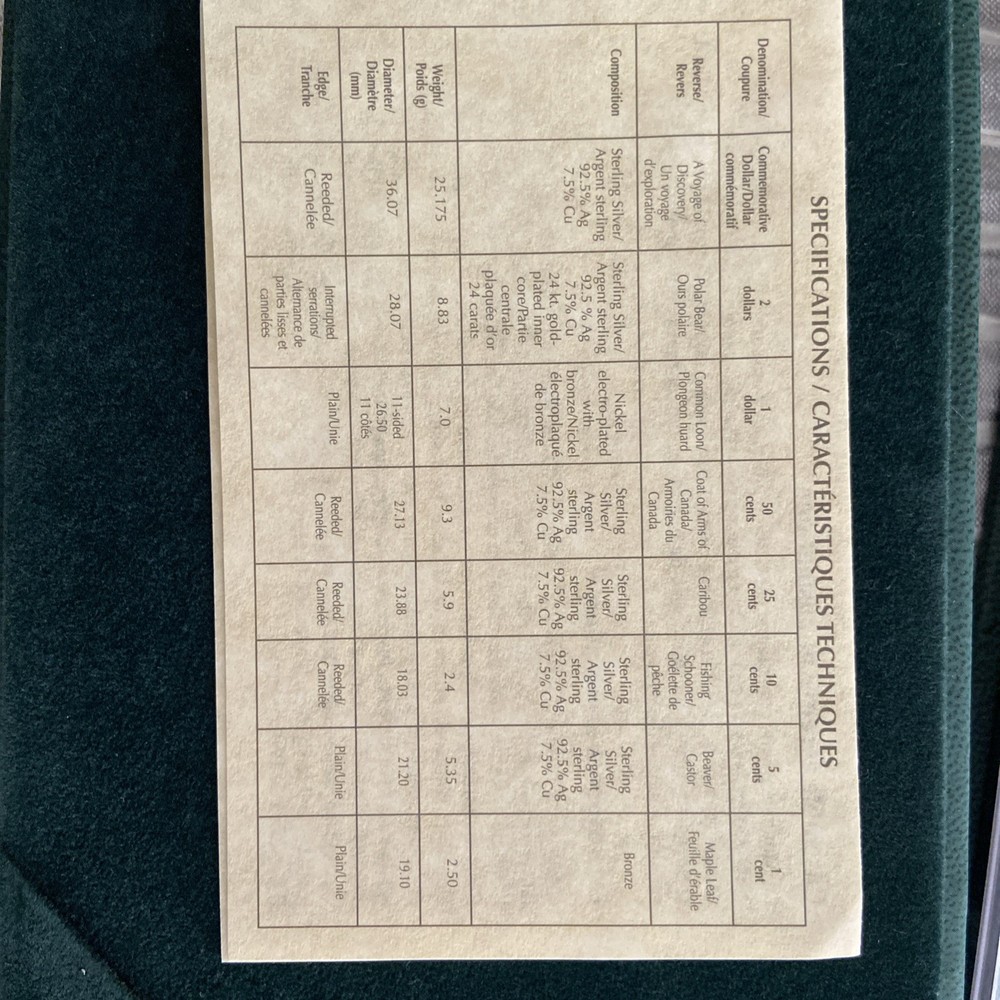 SPECIFICATIONS / CARACTÉRISTIQUES TECHNIQUES
Denomination/
Coupure
Commemorative
Dollar/Dollar
commémoratif
2
dollars
1
dollar
50
cents
25
cents
10
cents
5
cents
1
cent
Reverse/
Revers
A Voyage of
Discovery/
Un voyage
d'exploration
Polar Bear/
Ours polaire
Common Loon/
Plongeon huard
Coat of Arms of
Canada/
Armoiries du
Canada
Caribou
Fishing
Schooner/
Goélette de
pêche
Beaver/
Castor
Maple Leaf/
Feuille d'érable
Composition
Sterling Silver/
Argent sterling
92.5% Ag
7.5% Cu
Sterling Silver/
Argent sterling
92.5 % Ag
7.5% Cu
24 kt. gold-
plated inner
core/Partie
centrale
plaquée d'or
24 carats
Nickel
electro-plated
with
bronze/Nickel
électroplaqué
de bronze
Sterling
Silver/
Argent
sterling
92.5% Ag
7.5% Cu
Sterling
Silver/
Argent
sterling
92.5% Ag
7.5% Cu
Sterling
Silver/
Argent
sterling
92.5% Ag
7.5% Cu
Sterling
Silver/
Argent
sterling
92.5% Ag
7.5% Cu
Bronze
Weight/
Poids (g)
25.175
8.83
7.0
9.3
5.9
2.4
5.35
2.50
Diameter/
Diamètre
(mm)
36.07
28.07
11-sided
26.50
11 côtés
27.13
23.88
18.03
21.20
19.10
Edge/
Tranche
Reeded/
Cannelée
Interrupted
serrations/
Alternance de
parties lisses et
cannelées
Plain/Unie
Reeded/
Cannelée
Reeded/
Cannelée
Reeded/
Cannelée
Plain/Unie
Plain/Unie